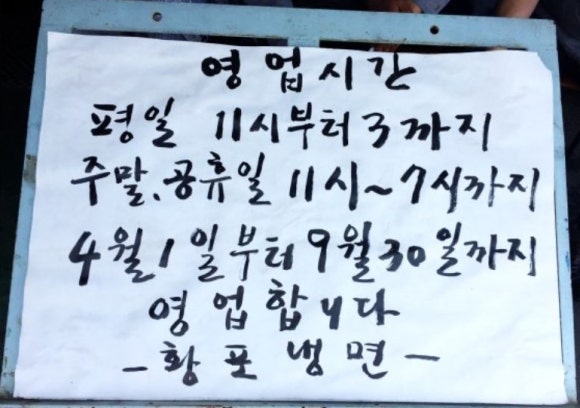 영업시간
평일 11시부터 3까지
주말.공휴일 11시~7시까지
4월1일부터 9월30일까지
영업합니다
-황포냉면-